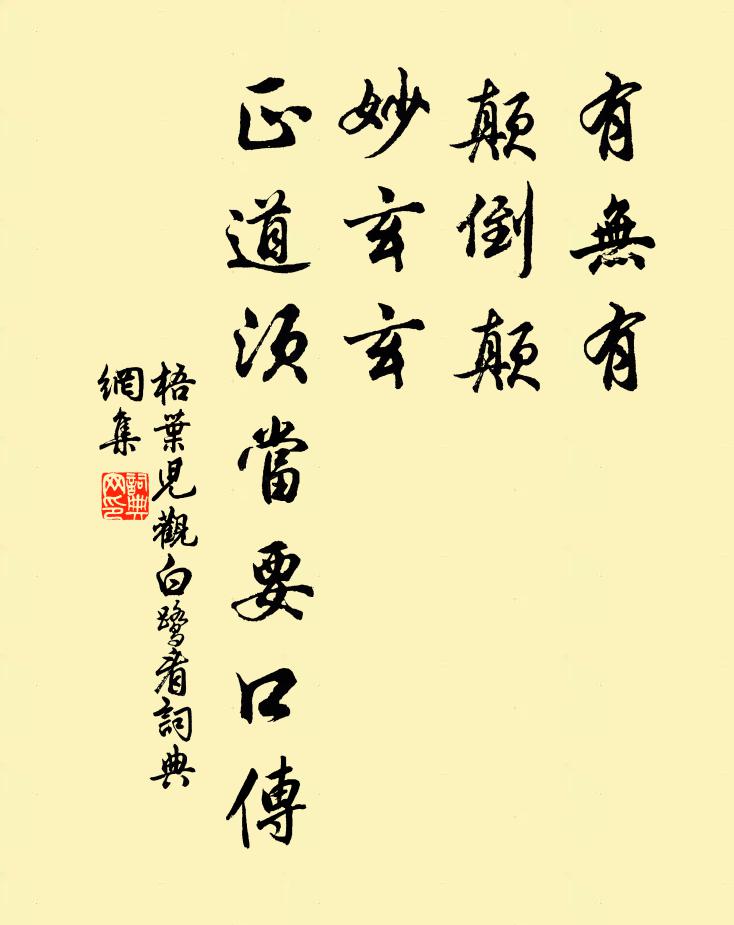 有無有
顛倒顛
妙玄玄
正道須當要口傳
梧葉兒觀白鷺者詞典
網集
詞典
网印